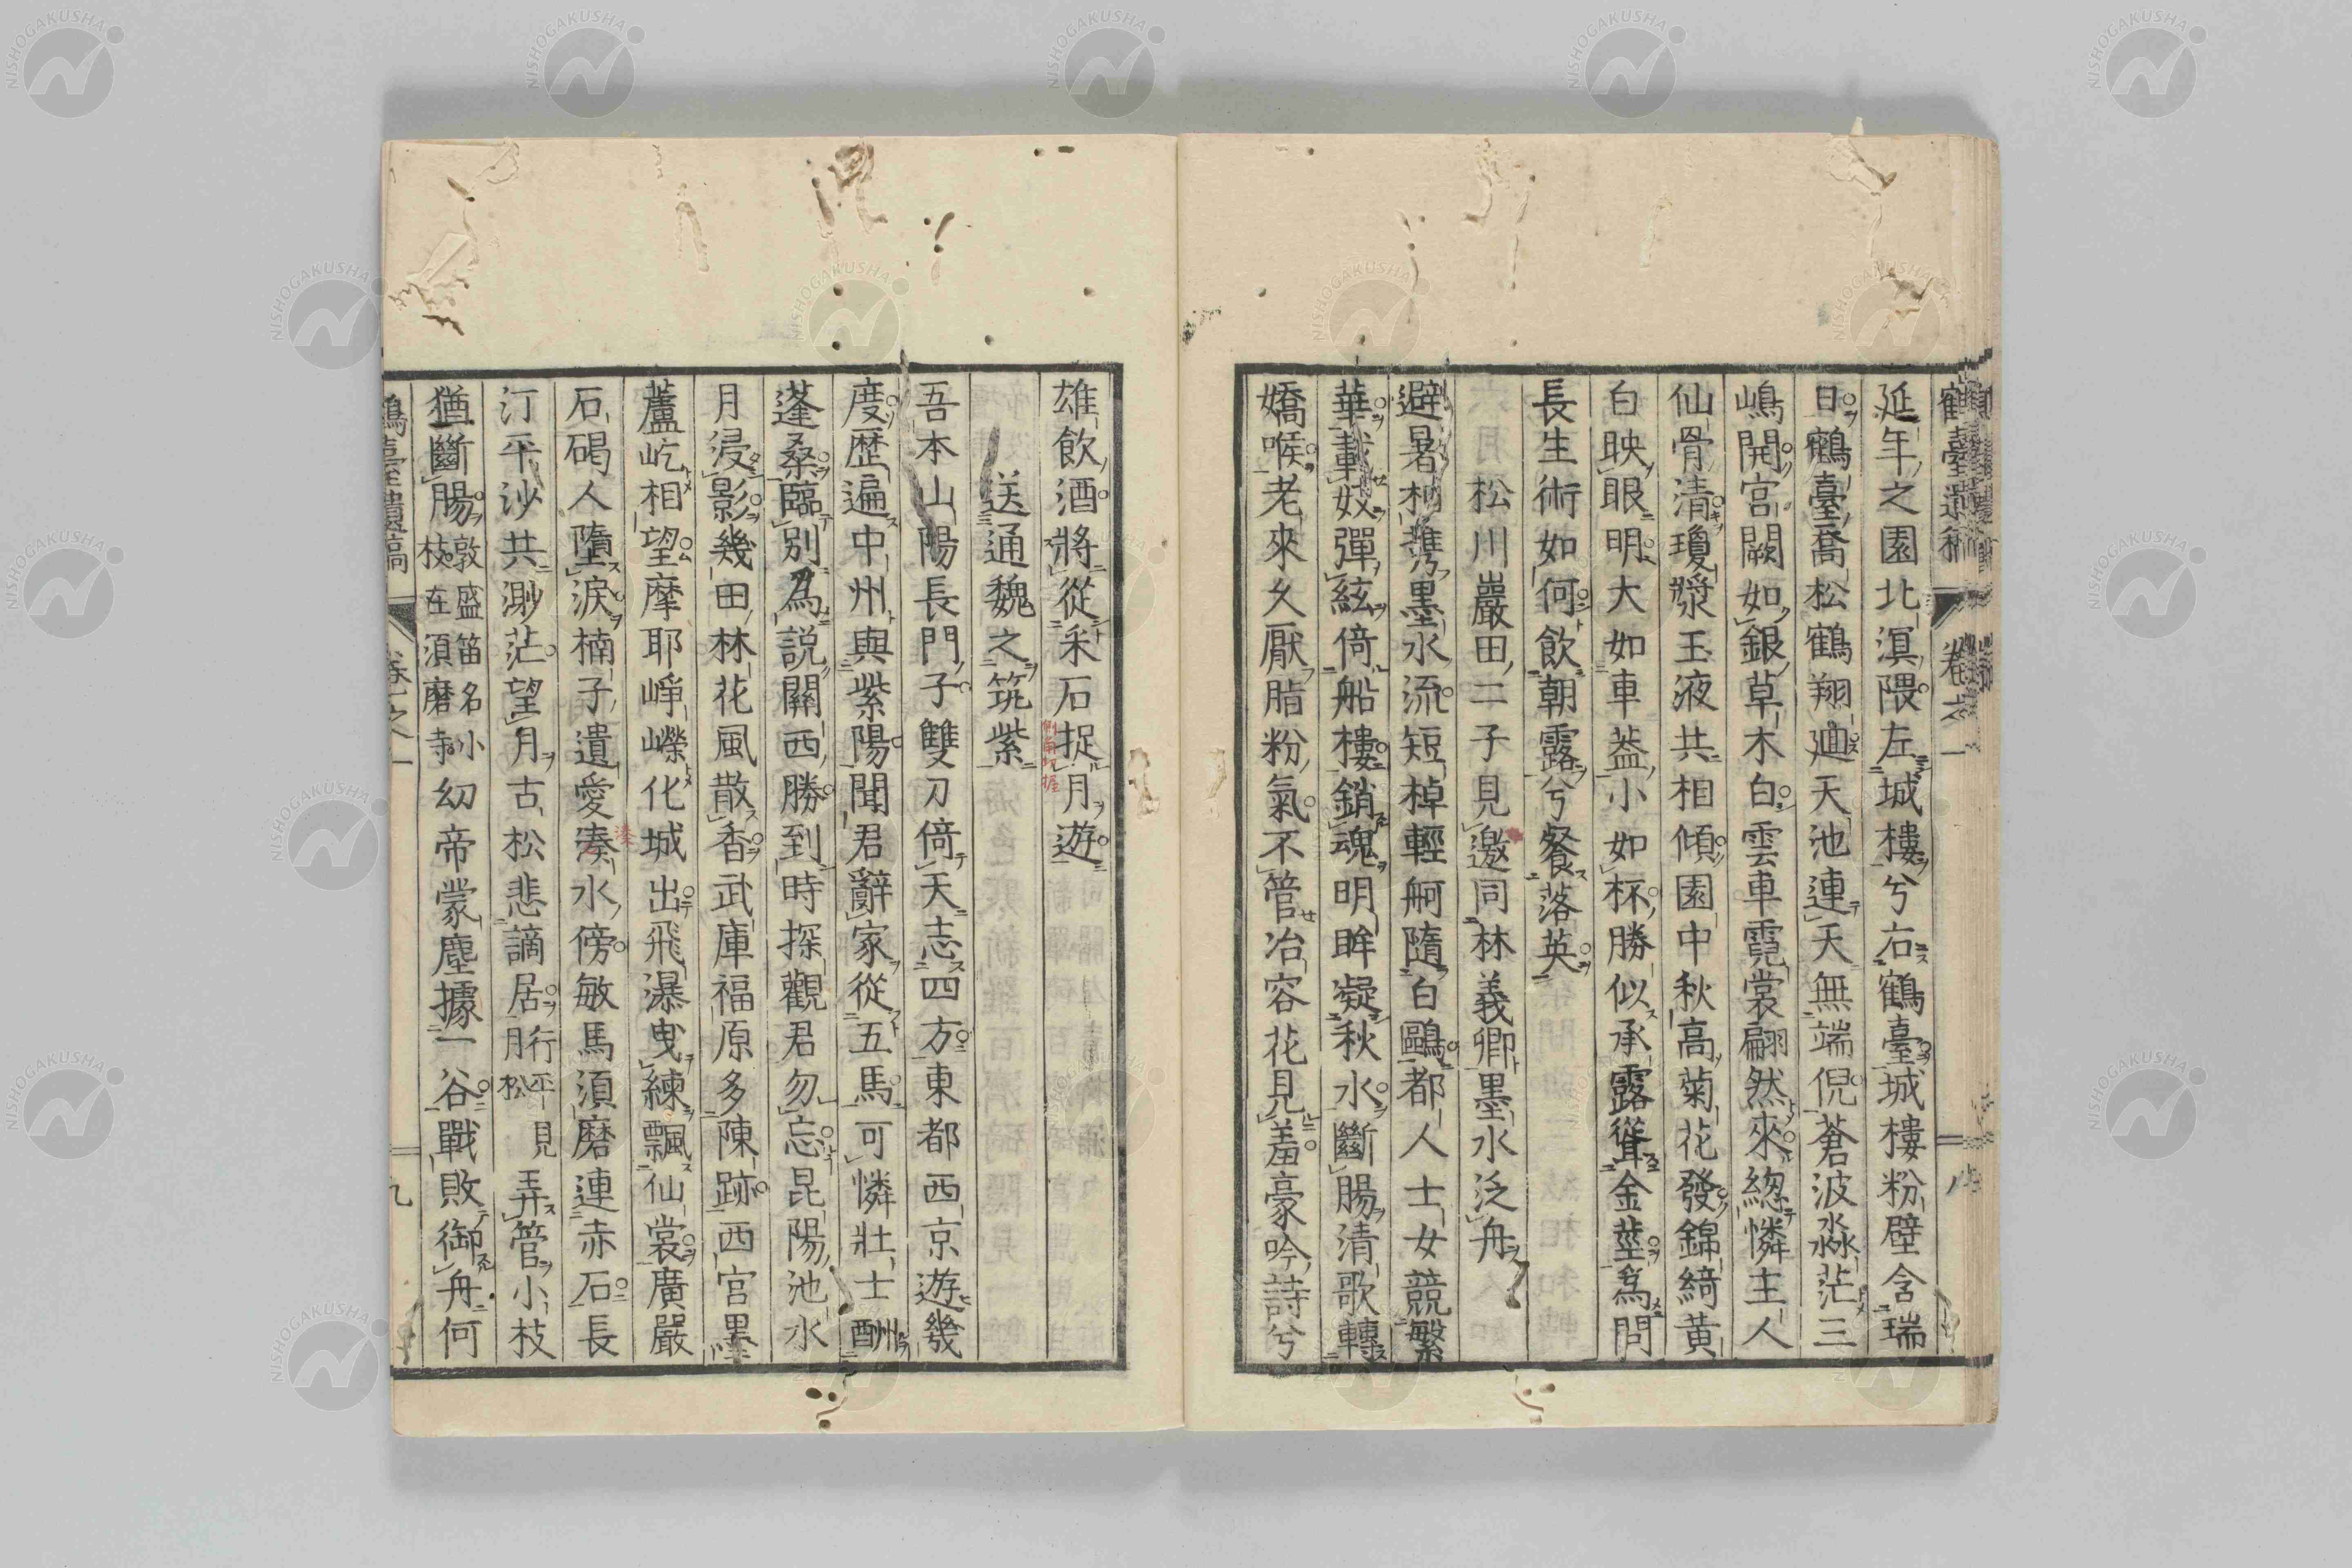 鶴臺遺稿 卷之一
延年之園北溟隈左城樓兮右鶴臺城樓粉壁含瑞
日鶴臺喬松鶴翔廻天池連天無端倪蒼波淼茫三
嶋開宮闕如銀草木白雲車霓裳翩然來緫憐主人
仙骨清瓊漿玉液共相傾園中秋高菊花發錦綺黃
白映眼明大如車葢小如杯勝似承露聳金莖爲問
長生術如何飲朝露兮餐落英
六月松川嚴田二子見邀同林義卿墨水泛舟
避暑相攜墨水流短棹輕舸隨白鷗都人士女競繁
華載妓彈絃倚船樓銷魂明眸凝秋水斷腸清歌轉
嬌喉老來久厭脂粉氣不管冶容花見羞豪吟詩兮
雄飲酒將從采石捉月遊
送通魏之筑紫
吾本山陽長門子雙刀倚天志四方東都西京遊幾
度歷遍中州與紫陽聞君辭家從五馬可憐壯士酬
蓬桑臨別爲說關西勝到時探觀君勿忘昆陽池水
月浸影幾田林花風散香武庫福原多陳跡西宮墨
蘆屹相望摩耶崢嶸化城出飛瀑曳練飄仙裳廣嚴
石碣人墮淚楠子遺愛湊水傍敏馬須磨連赤石長
汀平沙共渺茫望月古松悲謫居行平見月松弄管小枝
猶斷腸敦盛笛名小枝在須磨寺幼帝蒙塵據一谷戰敗御舟何
鶴臺遺稿 卷之一 九
NISHOGAKUSHA
NISHOGAKUSHA
NISHOGAKUSHA
NISHOGAKUSHA
NISHOGAKUSHA